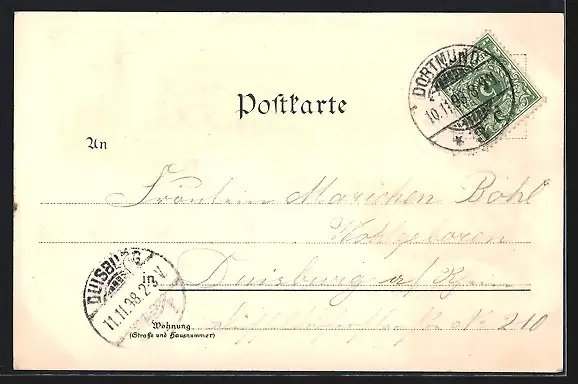 Postkarte
DORTMUND
10.11.98
An
Fräulein Mariechen Böhl
Wohlgeboren
DUISBURG
11.11.98.2-3 V
in Duisburg a/Rhein
Wohnung
(Straße und Hausnummer)
No 210